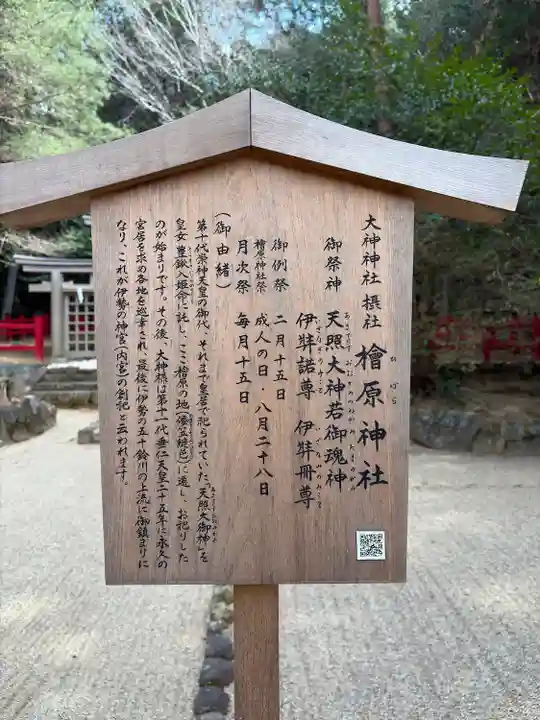 大神神社 摂社 檜原神社
ひばら
御祭神 天照大神若御魂神
伊弉諾尊 伊弉冊尊
いざなぎのみこと いざなみのみこと
御例祭 二月十五日
檜原神社祭 成人の日・八月二十八日
月次祭 毎月十五日
(御由緒)
第十代崇神天皇の御代、それまで皇居で祀られていた「天照大御神」を
皇女豊鍬入姫命に託し、ここ檜原の地(倭笠縫邑)に遷し、お祀りした
のが始まりです。その後、大神様は第十一代垂仁天皇二十五年に永久の
宮居を求め各地を巡幸され、最後に伊勢の五十鈴川の上流に御鎮まりに
なり、これが伊勢の神宮(内宮)の創祀と云われます。